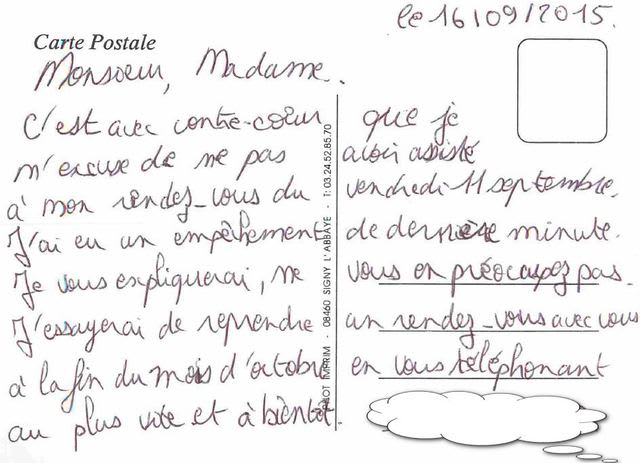 le 16/09/2015.
Carte Postale
Monsieur, Madame.
C'est avec contre-cœur que je
m'excuse de ne pas avoir assisté
à mon rendez-vous du vendredi 11 septembre.
J'ai eu un empêchement de dernière minute.
Je vous expliquerai, ne vous en préocupez pas.
J'essayerai de reprendre un rendez-vous avec vous
à la fin du mois d'octobre en vous téléphonant
au plus vite et à bientôt.
IMPRIM - 08460 SIGNY L'ABBAYE - T: 03.24.52.85.70